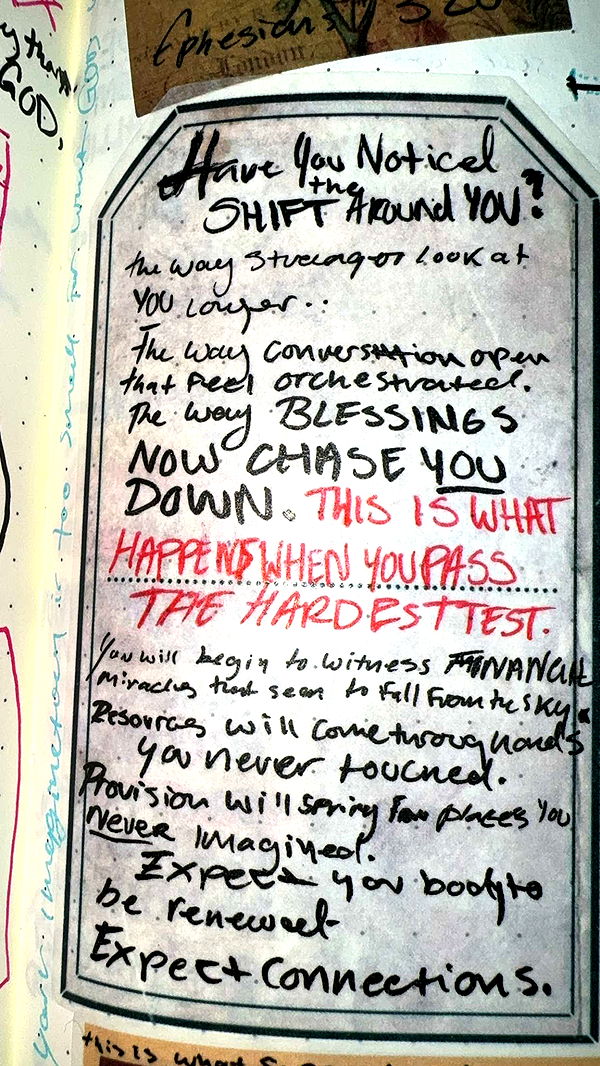 Ephesians 3:20
London
y than
GOD,
Have You Noticed
the
SHIFT Around YOU?
the way strangers look at
YOU Longer..
The way conversation open
that feel orchestrated.
The way BLESSINGS
NOW CHASE YOU
DOWN. THIS IS WHAT
HAPPENS WHEN YOU PASS
THE HARDEST TEST.
You will begin to witness FINANCIAL
miracles that seem to fall from the sky.
Resources will come through hands
you never touched.
Provision will spring from places you
NEVER imagined.
Expect you body to
be renewed
Expect Connections.
your imagination is too small for what God
this is what